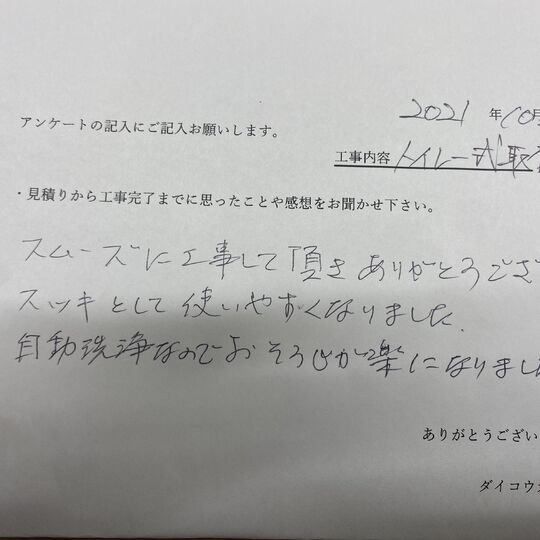 2021 年10月
アンケートの記入にご記入お願いします。
工事内容 トイレ一式取
・見積りから工事完了までに思ったことや感想をお聞かせ下さい。
スムーズに工事して頂きありがとうござ
スッキとして使いやすくなりました.
自動洗浄なのでおそうじが楽になりました
ありがとうござい
ダイコウ